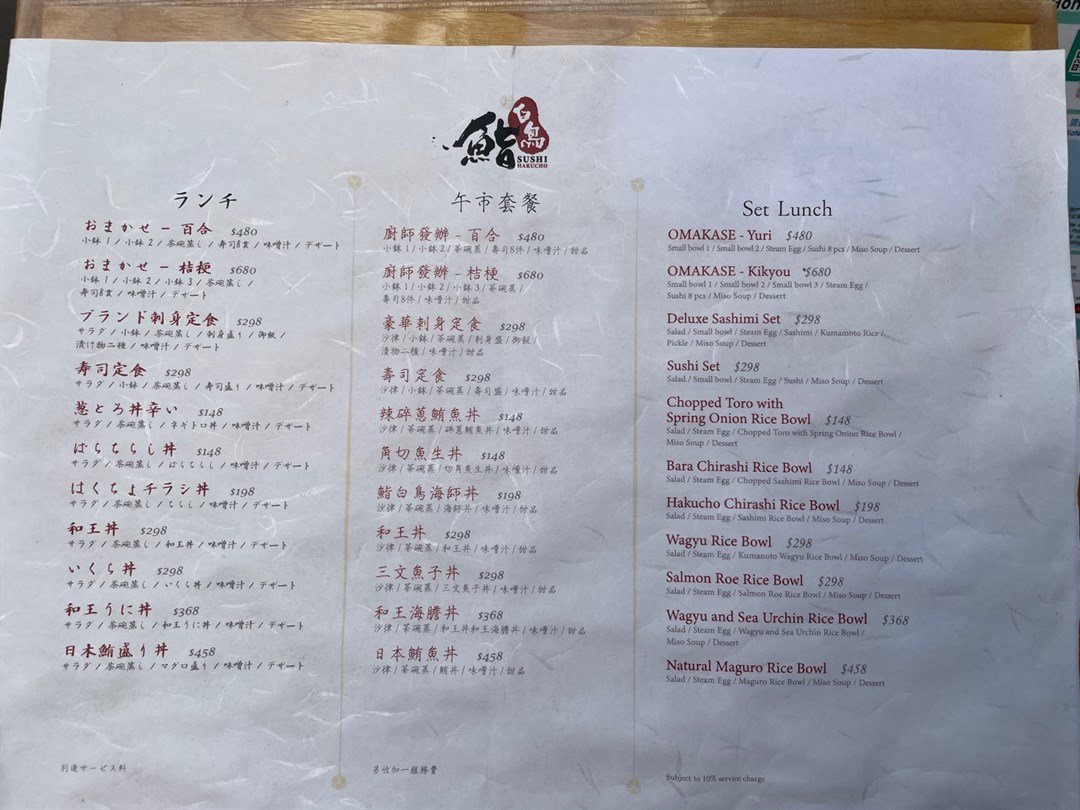 鮨
白鳥
SUSHI
HAKUCHO
ランチ
おまかせ - 百合 $480
小鉢 1 / 小鉢 2 / 茶碗蒸し / 寿司8貫 / 味噌汁 / デザート
おまかせ - 桔梗 $680
小鉢 1 / 小鉢 2 / 小鉢 3 / 茶碗蒸し /
寿司8貫 / 味噌汁 / デザート
ブランド刺身定食 $298
サラダ / 小鉢 / 茶碗蒸し / 刺身盛り / 御飯 /
漬け物二種 / 味噌汁 / デザート
寿司定食 $298
サラダ / 小鉢 / 茶碗蒸し / 寿司盛り / 味噌汁 / デザート
葱とろ丼辛い $148
サラダ / 茶碗蒸し / ネギトロ丼 / 味噌汁 / デザート
ばらちらし丼 $148
サラダ / 茶碗蒸し / ばらちらし / 味噌汁 / デザート
はくちょチラシ丼 $198
サラダ / 茶碗蒸し / ちらし / 味噌汁 / デザート
和王丼 $298
サラダ / 茶碗蒸し / 和王丼 / 味噌汁 / デザート
いくら丼 $298
サラダ / 茶碗蒸し / いくら丼 / 味噌汁 / デザート
和王うに丼 $368
サラダ / 茶碗蒸し / 和王うに丼 / 味噌汁 / デザート
日本鮪盛り丼 $458
サラダ / 茶碗蒸し / マグロ盛り / 味噌汁 / デザート
別途サービス料
午市套餐
廚師發辦 - 百合 $480
小鉢 1 / 小鉢 2 / 茶碗蒸 / 寿司8件 / 味噌汁 / 甜品
廚師發辦 - 桔梗 $680
小鉢 1 / 小鉢 2 / 小鉢 3 / 茶碗蒸 /
寿司8件 / 味噌汁 / 甜品
豪華刺身定食 $298
沙律 / 小鉢 / 茶碗蒸 / 刺身盛 / 御飯 /
漬物二種 / 味噌汁 / 甜品
壽司定食 $298
沙律 / 小鉢 / 茶碗蒸 / 壽司盛 / 味噌汁 / 甜品
辣碎蔥鮪魚丼 $148
沙律 / 茶碗蒸 / 碎蔥鮪魚丼 / 味噌汁 / 甜品
角切魚生丼 $148
沙律 / 茶碗蒸 / 切角魚生丼 / 味噌汁 / 甜品
鮨白鳥海師丼 $198
沙律 / 茶碗蒸 / 海師丼 / 味噌汁 / 甜品
和王丼 $298
沙律 / 茶碗蒸 / 和王丼 / 味噌汁 / 甜品
三文魚子丼 $298
沙律 / 茶碗蒸 / 三文魚子丼 / 味噌汁 / 甜品
和王海膽丼 $368
沙律 / 茶碗蒸 / 和王丼和王海膽丼 / 味噌汁 / 甜品
日本鮪魚丼 $458
沙律 / 茶碗蒸 / 鮪丼 / 味噌汁 / 甜品
另收加一服務費
Set Lunch
OMAKASE - Yuri $480
Small bowl 1 / Small bowl 2 / Steam Egg / Sushi 8 pcs / Miso Soup / Dessert
OMAKASE - Kikyou *$680
Small bowl 1 / Small bowl 2 / Small bowl 3 / Steam Egg /
Sushi 8 pcs / Miso Soup / Dessert
Deluxe Sashimi Set $298
Salad / Small bowl / Steam Egg / Sashimi / Kumamoto Rice /
Pickle / Miso Soup / Dessert
Sushi Set $298
Salad / Small bowl / Steam Egg / Sushi / Miso Soup / Dessert
Chopped Toro with
Spring Onion Rice Bowl $148
Salad / Steam Egg / Chopped Toro with Spring Onion Rice Bowl /
Miso Soup / Dessert
Bara Chirashi Rice Bowl $148
Salad / Steam Egg / Chopped Sashimi Rice Bowl / Miso Soup / Dessert
Hakucho Chirashi Rice Bowl $198
Salad / Steam Egg / Sashimi Rice Bowl / Miso Soup / Dessert
Wagyu Rice Bowl $298
Salad / Steam Egg / Kumanoto Wagyu Rice Bowl / Miso Soup / Dessert
Salmon Roe Rice Bowl $298
Salad / Steam Egg / Salmon Roe Rice Bowl / Miso Soup / Dessert
Wagyu and Sea Urchin Rice Bowl $368
Salad / Steam Egg / Wagyu and Sea Urchin Rice Bowl /
Miso Soup / Dessert
Natural Maguro Rice Bowl $458
Salad / Steam Egg / Maguro Rice Bowl / Miso Soup / Dessert
Subject to 10% service charge